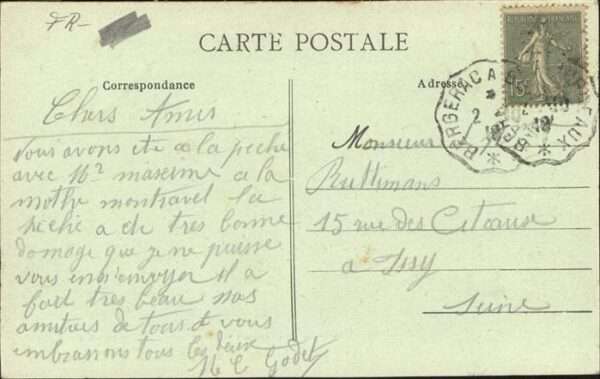 FR-
CARTE POSTALE
Correspondance
Adresse
REPUBLIQUE FRANÇAISE
15
BERGERAC A B
Chers Amis
Vous avons ete a la peche
avec Mr maxime a la
mothe montravel la
pêche a ete tres bonne
domage que je ne puisse
vous en envoyer il a
fait tres beau nos
amities de tous
vous
embrassons tous les deux
M C Godet
Monsieur
Ruttimans
15 rue des Citeaux
a Issy
Seine